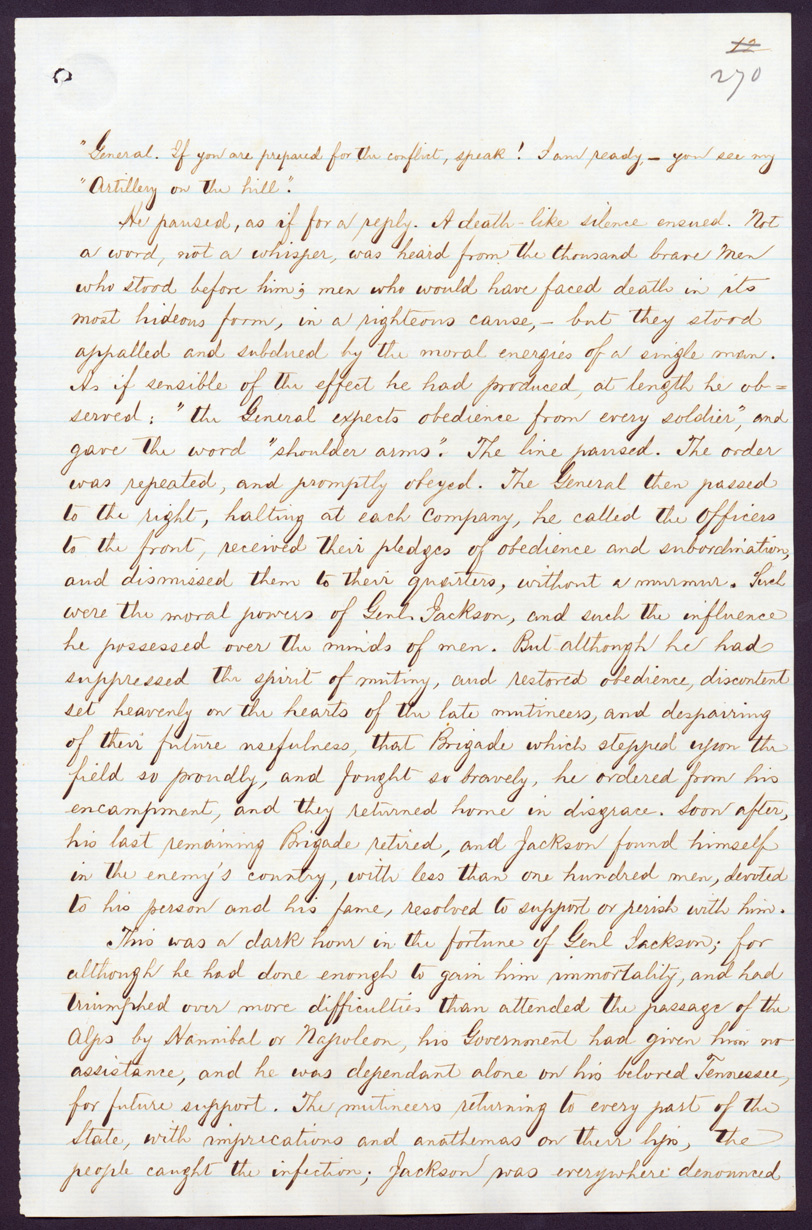 12
270
"General. If you are prepared for the conflict, speak! I am ready, – you see my
"Artillery on the hill".
He paused, as if for a reply. A death-like silence ensued. Not
a word, not a whisper, was heard from the thousand brave men
who stood before him; men who would have faced death in its
most hideous form, in a righteous cause, – but they stood
appalled and subdued by the moral energies of a single man.
As if sensible of the effect he had produced, at length he ob=
served: "the General expects obedience from every soldier", and
gave the word "shoulder arms". The line paused. The order
was repeated, and promptly obeyed. The General then passed
to the right, halting at each Company, he called the Officers
to the front, received their pledges of obedience and subordination,
and dismissed them to their quarters, without a murmur. Such
were the moral powers of Genl. Jackson, and such the influence
he possessed over the minds of men. But although he had
suppressed the spirit of mutiny, and restored obedience, discontent
set heavenly on the hearts of the late mutineers, and despairing
of their future usefulness, that Brigade which stepped upon the
field so proudly, and fought so bravely, he ordered from his
encampment, and they returned home in disgrace. Soon after,
his last remaining Brigade retired, and Jackson found himself
in the enemy's country, with less than one hundred men, devoted
to his person and his fame, resolved to support or perish with him.
This was a dark hour in the fortune of Genl Jackson; for
although he had done enough to gain him immortality, and had
triumphed over more difficulties than attended the passage of the
Alps by Hannibal or Napoleon, his Government had given him no
assistance, and he was dependant alone on his beloved Tennessee,
for future support. The mutineers returning to every part of the
State, with imprecations and anathemas on their lips, the
people caught the infection; Jackson was everywhere denounced